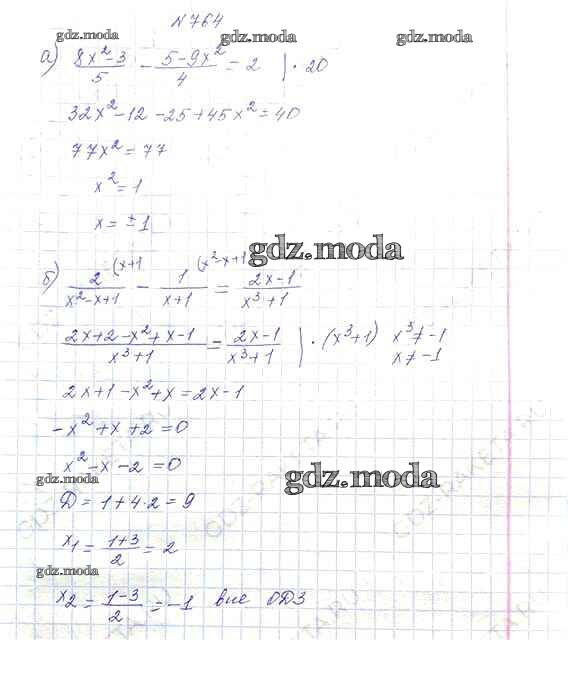 №764
gdz.moda gdz.moda gdz.moda
а) (8x²-3)/5 - (5-9x²)/4 = 2 | · 20
32x² - 12 - 25 + 45x² = 40
77x² = 77
x² = 1
x = ± 1
gdz.moda
б) 2/(x²-x+1) (x+1 - 1/(x+1) (x²-x+1 = (2x-1)/(x³+1)
(2x+2-x²+x-1)/(x³+1) = (2x-1)/(x³+1) | · (x³+1) x³≠-1
x≠-1
2x+1-x²+x=2x-1
-x²+x+2=0
x²-x-2=0
gdz.moda gdz.moda
Д = 1+4·2 = 9
x₁ = (1+3)/2 = 2
gdz.moda
x₂ = (1-3)/2 = -1 вне ОДЗ
GDZ-RAKETA.RU
GDZ-RAKETA.RU
GDZ-RAKETA.RU